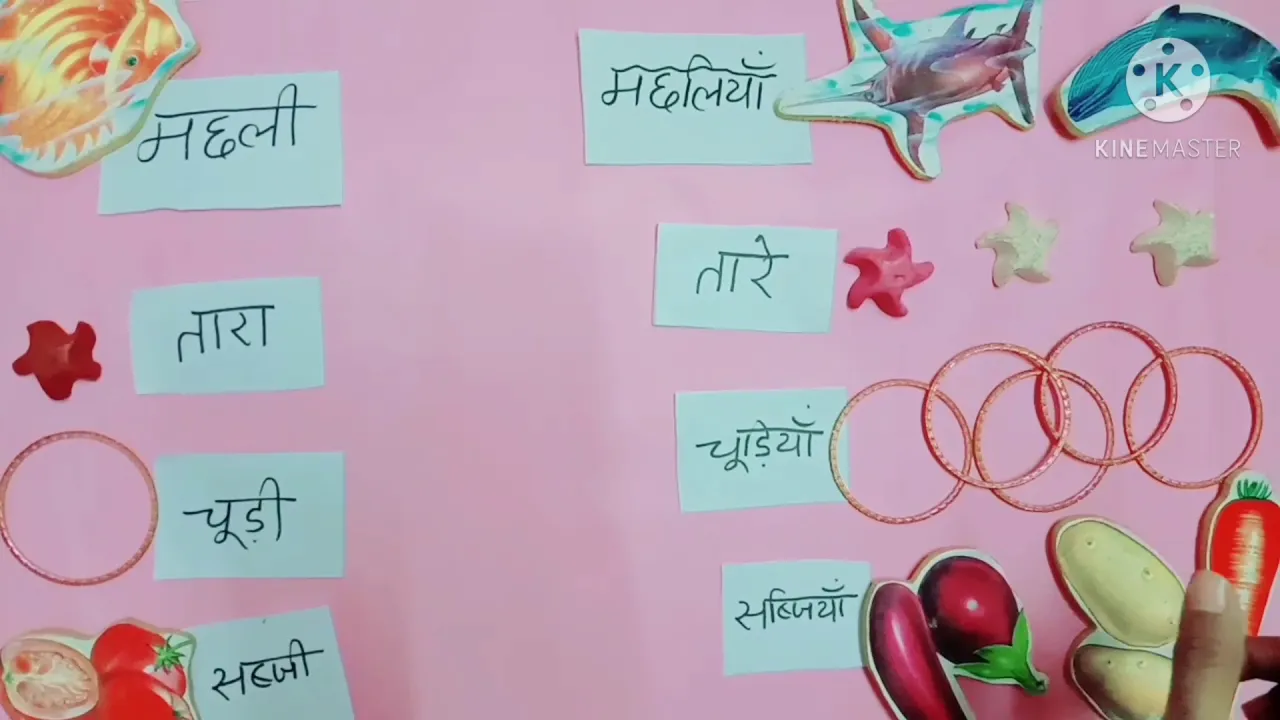 मछली
मछलियाँ
K
KINEMASTER
तारा
तारे
चूड़ी
चूड़ियाँ
सब्जी
सब्जियाँ